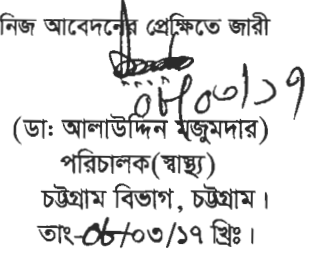 নিজ আবেদনের প্রেক্ষিতে জারী
০৮/০৩/১৭
(ডা: আলাউদ্দিন মজুমদার)
পরিচালক(স্বাস্থ্য)
চট্টগ্রাম বিভাগ, চট্টগ্রাম।
তাং-০৮/০৩/১৭ খ্রিঃ।